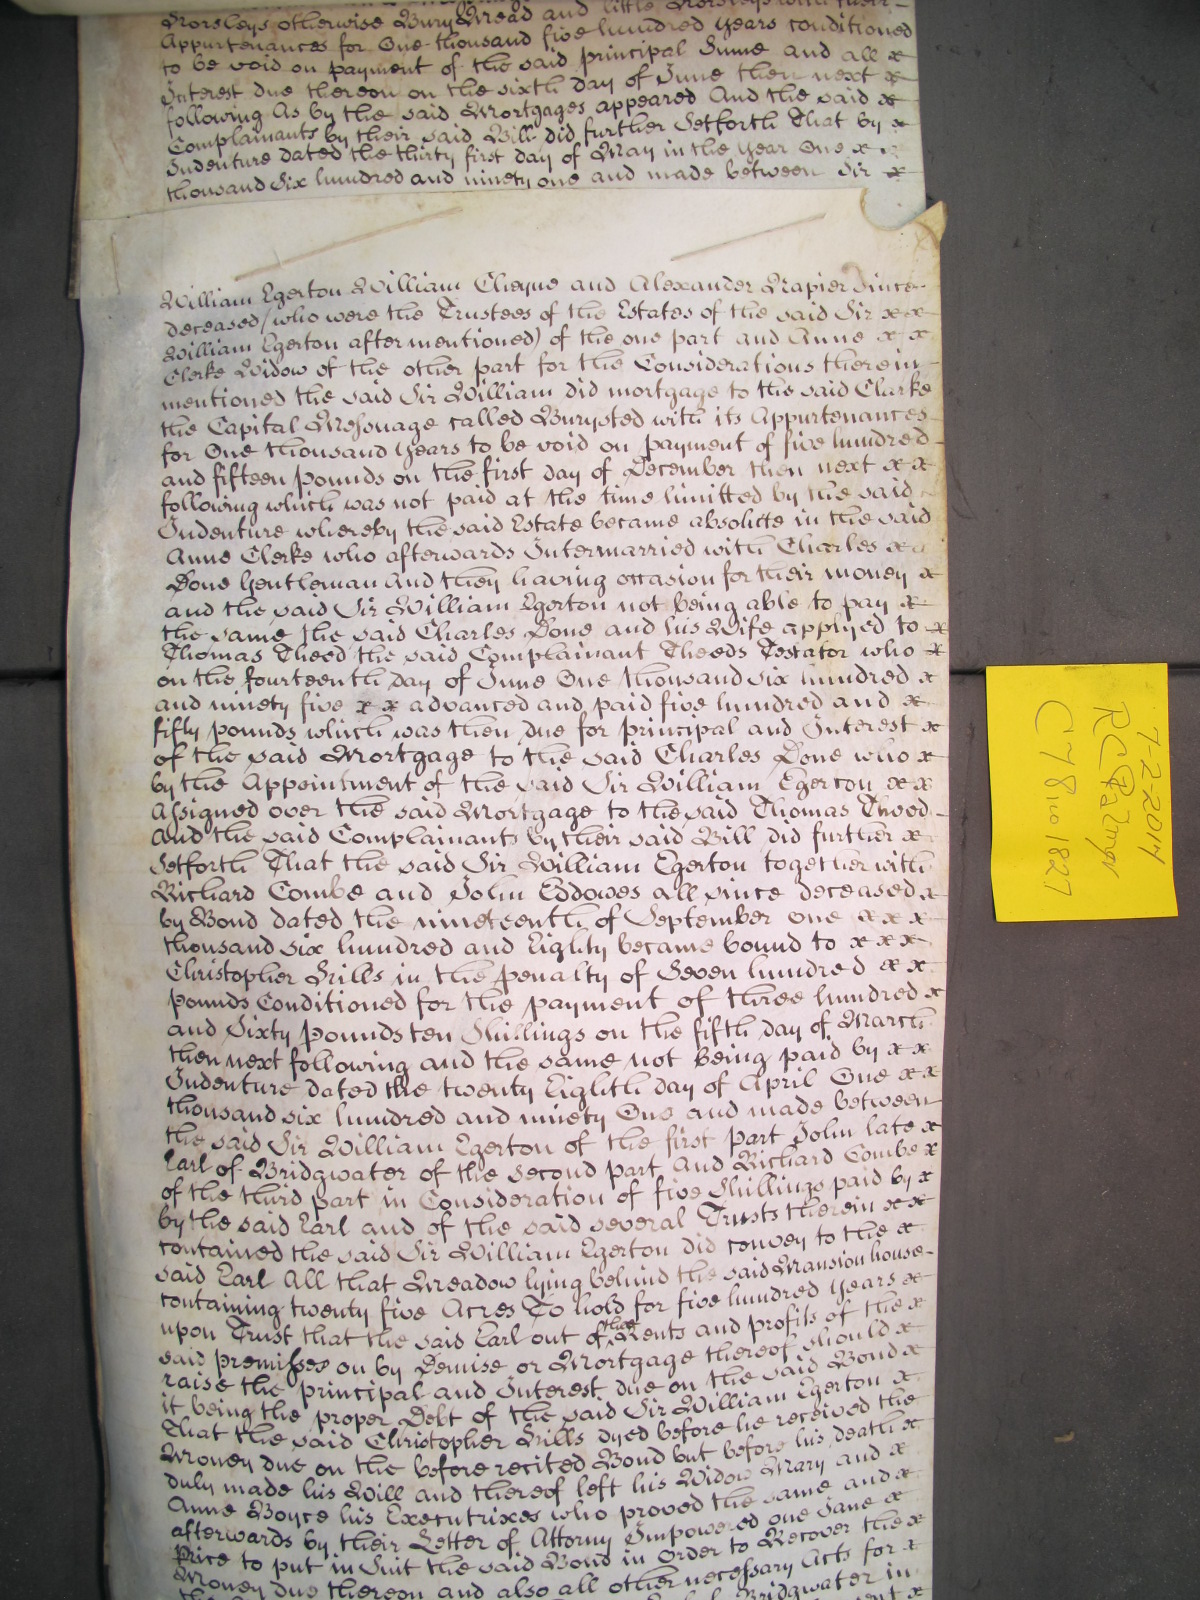 Horsleys otherwise Bury Mead and little Horsleys with their
Appurtenances for One thousand five hundred years conditioned
to be void on payment of the said principal Summe and all x
Interest due thereon on the sixth day of June then next x
following As by the said Mortgages appeared And the said x
Complainants by their said Bill did further Setforth That by x
Indenture dated the thirty first day of May in the year One x
thousand Six hundred and ninety one and made between Sir x
William Egerton William Cheyne and Alexander Napier Since
deceased (who were the Trustees of the Estates of the said Sir x x
William Egerton aftermentioned) of the one part and Anne x x
Clerke Widow of the other part for the Considerations therein
mentioned the said Sir William did mortgage to the said Clarke
the Capital Messuage called Burysted with its Appurtenances
for One thousand years to be void on payment of five hundred
and fifteen pounds on the first day of December then next x x
following which was not paid at the time limitted by the said
Indenture whereby the said Estate became absolute in the said
Anne Clerke who afterwards Intermarried with Charles x
Done Gentleman And they having occasion for their money x
and the said Sir William Egerton not being able to pay x
the same the said Charles Done and his Wife applyed to x
Thomas Theed the said Complainant Theeds Testator who x
on the fourteenth day of June One thousand six hundred x
and ninety five x x advanced and paid five hundred and x
fifty pounds which was then due for principal and Interest x
of the said Mortgage to the said Charles Done who x
by the Appointment of the said Sir William Egerton x x
Assigned over the said Mortgage to the said Thomas Theed
And the said Complainants by their said Bill did further x
Setforth That the said Sir William Egerton together with
Richard Combe and John Eddowes all since deceased x
by Bond dated the nineteenth of September One x x x
thousand six hundred and Eighty became bound to x x x
Christopher Hills in the penalty of Seven hundred x x
pounds Conditioned for the payment of three hundred x
and Sixty pounds ten Shillings on the fifth day of March
then next following and the same not being paid by x x
Indenture dated the twenty Eighth day of April One x x
thousand six hundred and ninety One and made between
the said Sir William Egerton of the first part John late x
Earl of Bridgwater of the second part And Richard Combe x
of the third part in Consideration of five Shillings paid by x
by the said Earl and of the said several Trusts therein x x
contained the said Sir William Egerton did convey to the x
said Earl All that Meadow lying behind the said Mansion house
containing twenty five Acres To hold for five hundred years x
upon Trust that the said Earl out of the Rents and profits of the x
said premisses on by Demise or Mortgage thereof should x
raise the principal and Interest due on the said Bond x
it being the proper Debt of the said Sir William Egerton x
That the said Christopher Hills dyed before he received the
Money due on the before recited Bond but before his death x
duly made his Will and thereof left his Widow Mary and x
Anne Boyce his Executrixes who proved the same and x
afterwards by their Letter of Attorny Impowered one Jane x
Price to put in Suit the said Bond in Order to Recover the x
Money due thereon and also all other necessary Acts for x
Bridgwater in
7-2-2014
C78 no 1827